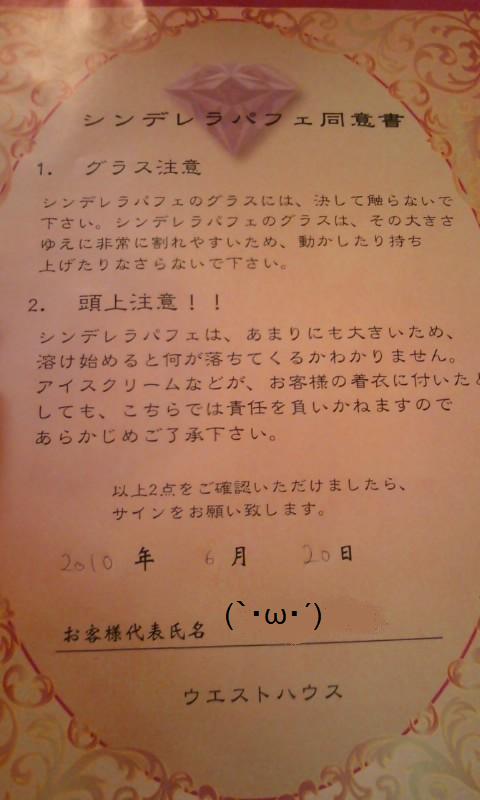 シンデレラパフェ同意書
1. グラス注意
シンデレラパフェのグラスには、決して触らないで
下さい。シンデレラパフェのグラスは、その大きさ
ゆえに非常に割れやすいため、動かしたり持ち
上げたりなさらないで下さい。
2. 頭上注意!!
シンデレラパフェは、あまりにも大きいため、
溶け始めると何が落ちてくるかわかりません。
アイスクリームなどが、お客様の着衣に付いたと
しても、こちらでは責任を負いかねますので
あらかじめご了承下さい。
以上2点をご確認いただけましたら、
サインをお願い致します。
2010 年 6 月 20 日
お客様代表氏名 (`・ω・´)
ウエストハウス